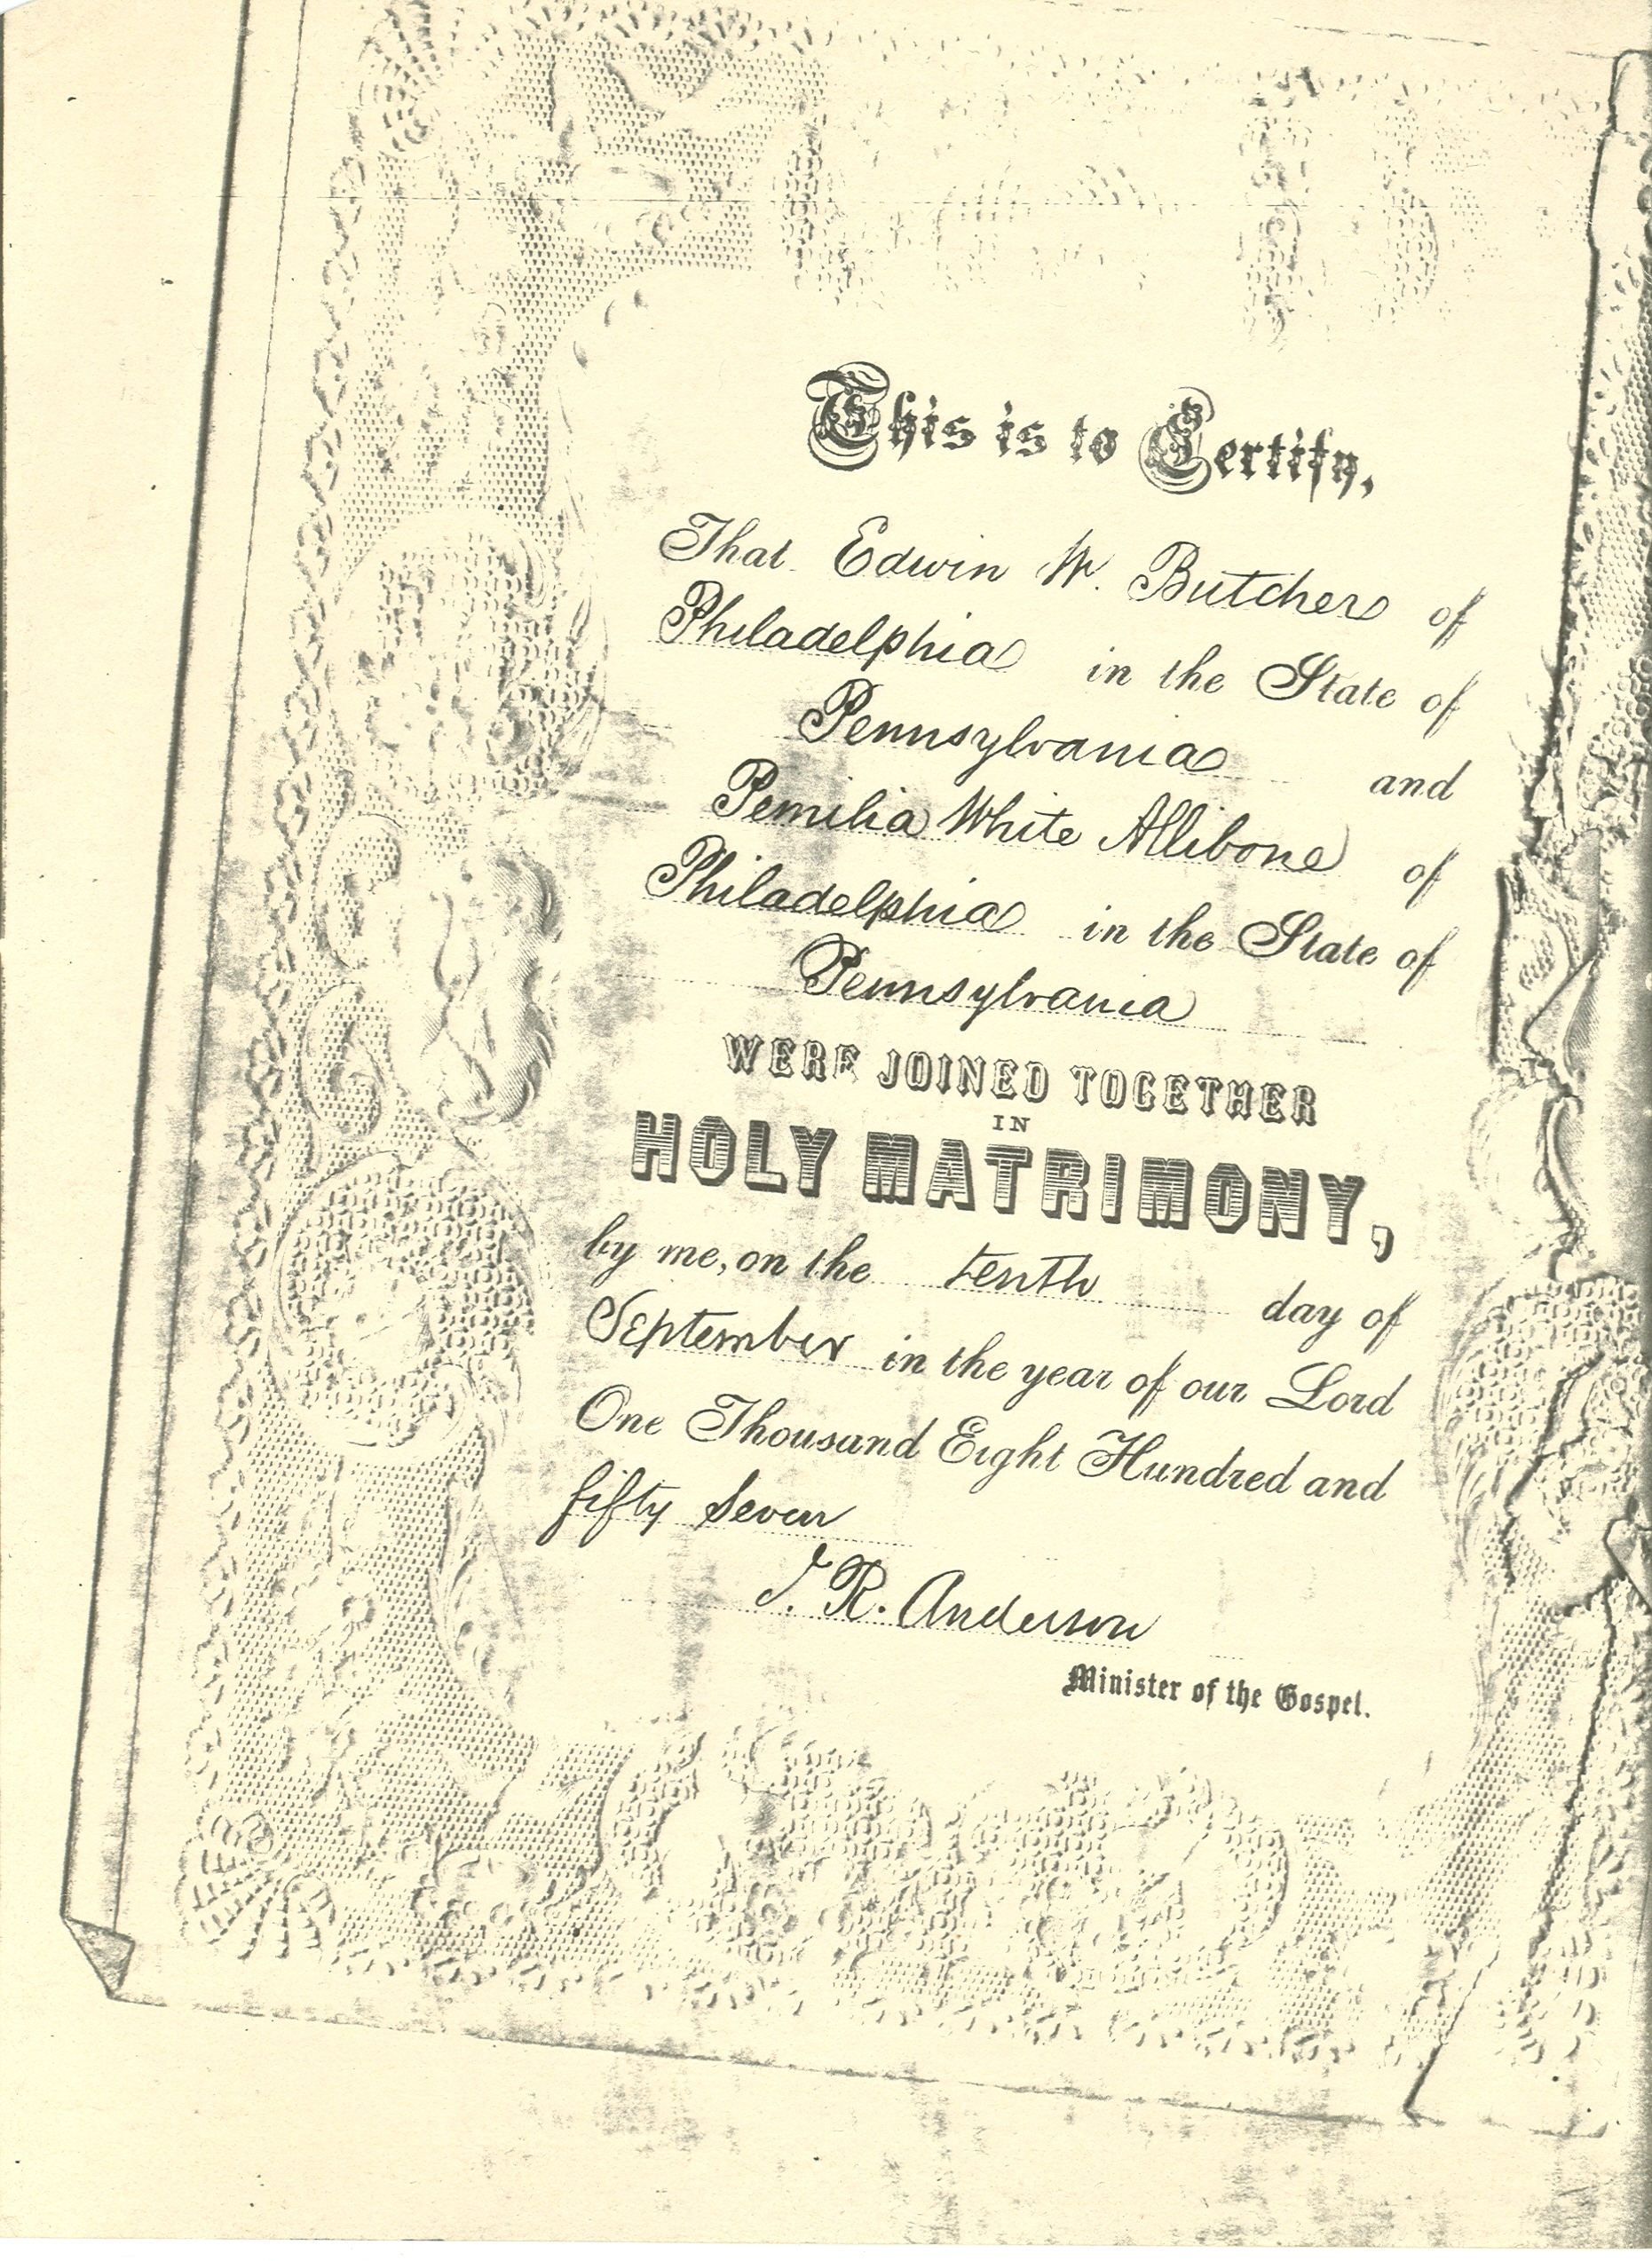 This is to Certify,
That Edwin W. Butcher of
Philadelphia in the State of
Pennsylvania and
Pemilia White Allibone of
Philadelphia in the State of
Pennsylvania
WERE JOINED TOGETHER
IN
HOLY MATRIMONY,
by me, on the tenth day of
September in the year of our Lord
One Thousand Eight Hundred and
fifty Seven
J. R. Anderson
Minister of the Gospel.